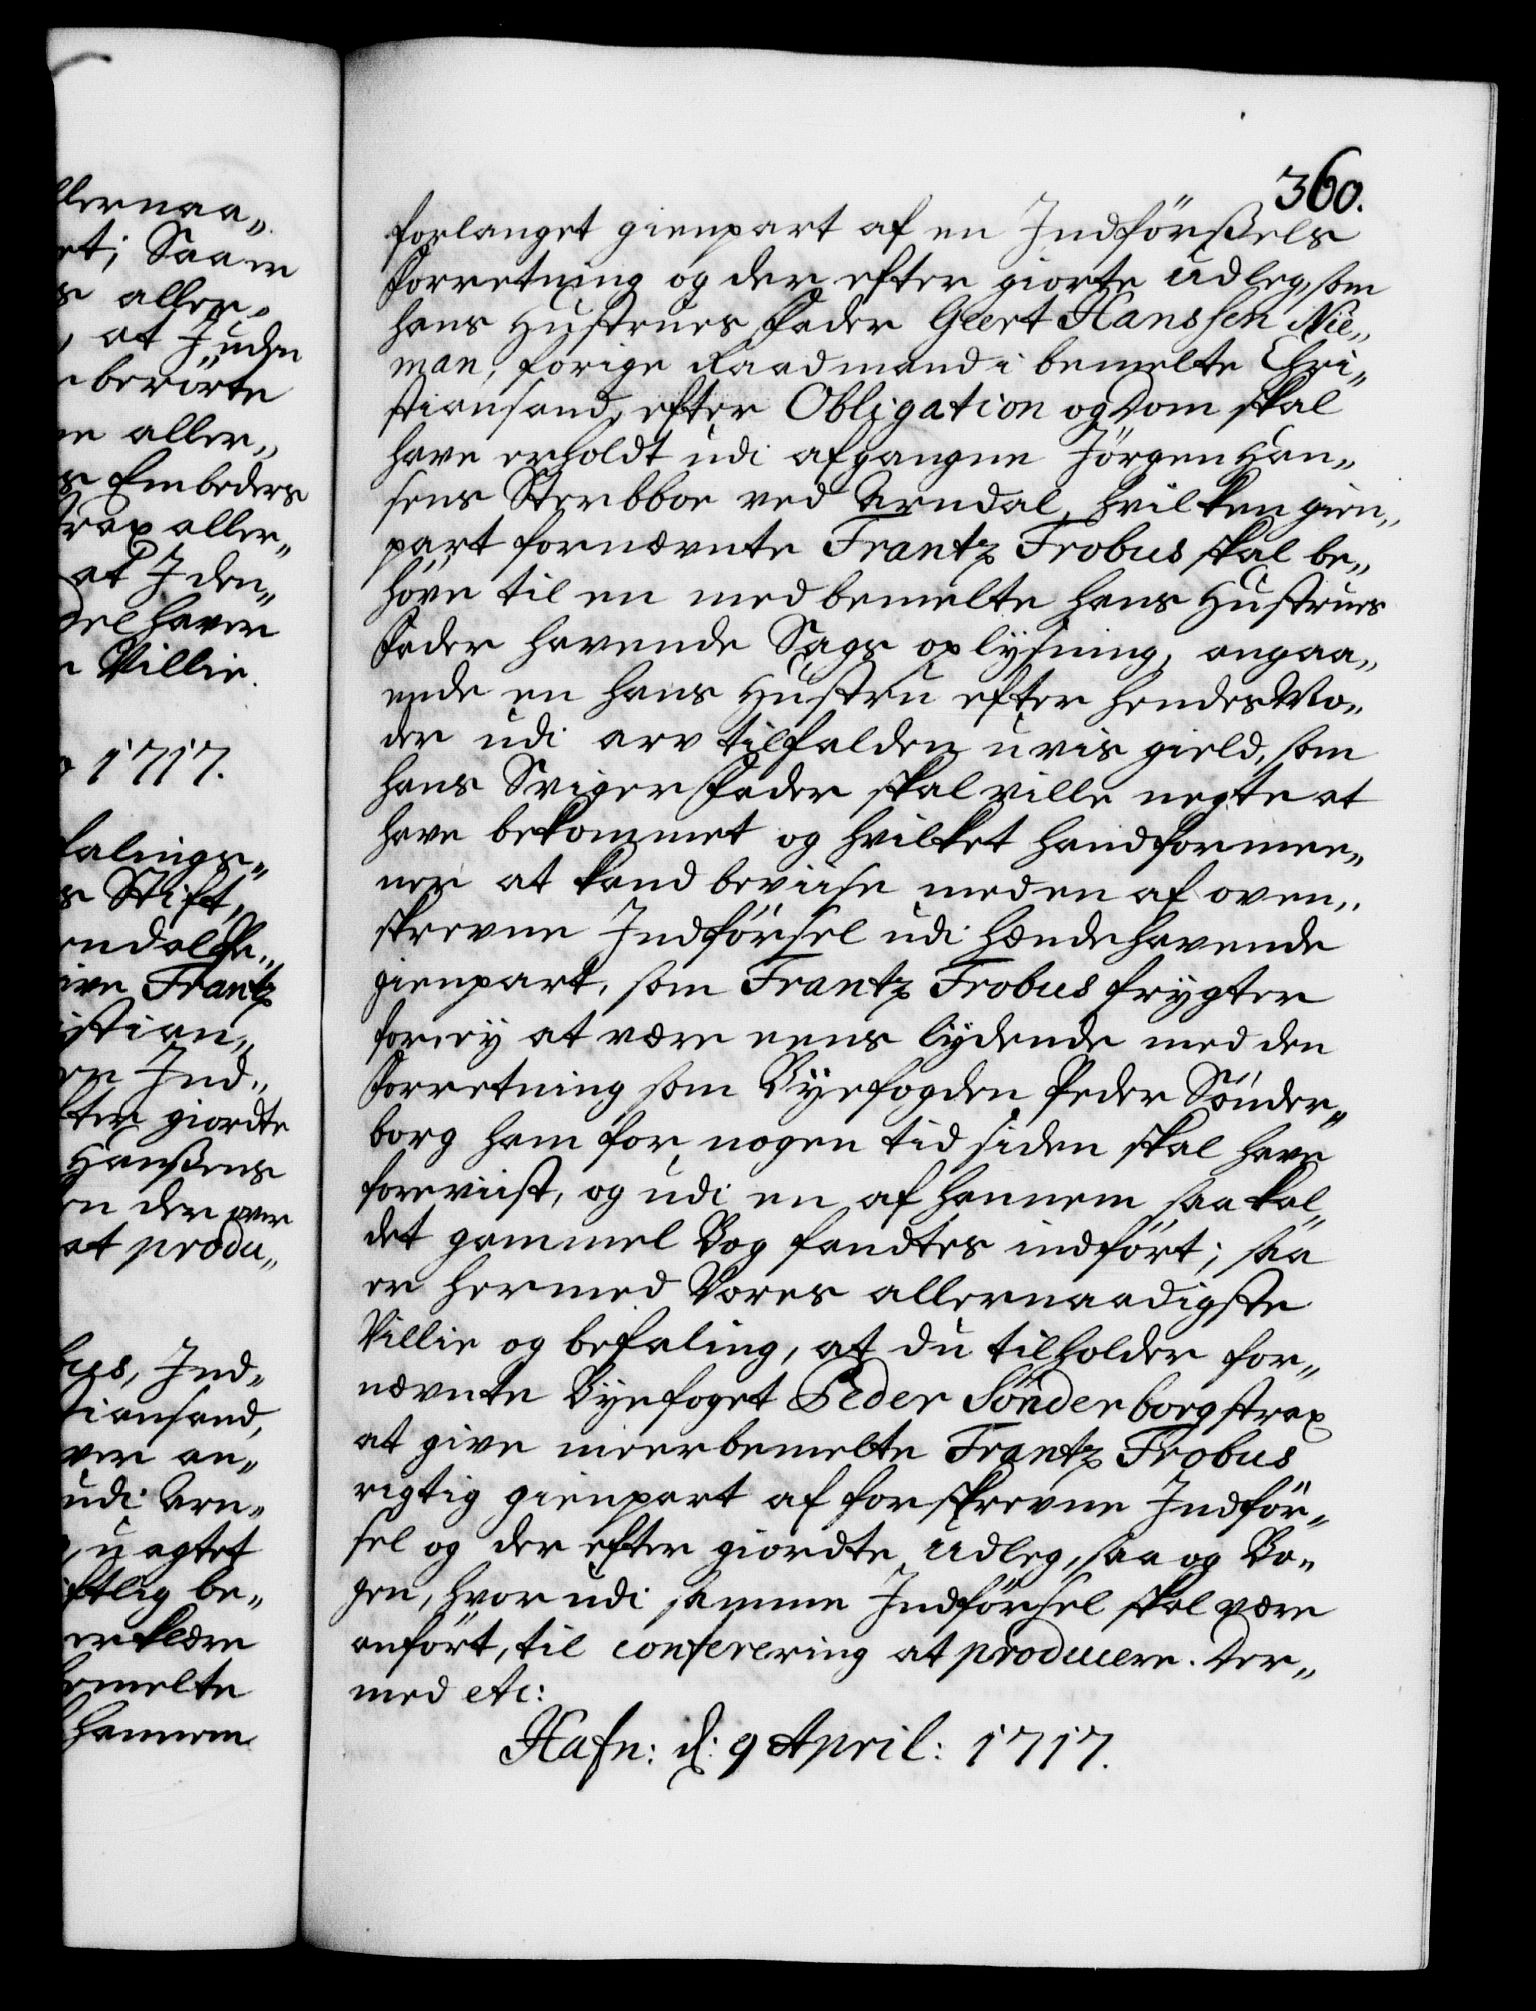 llernaa„
et; Saa er
s aller„
, at I uden
berörte
en aller„
s Embeders
trax aller„
at I den„
del haver
e Villie.
1717.
falings„
s Stift„
endal Pe„
ive Frantz
istian„
er Ind„
fter giordte
Hanßens
en der over
at produ„
bus, Ind„
tiansand,
ver an„
udi Arn„
, uagtet
iftlig be„
erklære
bemelte
hannem
360.
forlanget gienpart af en Indförßels
Forretning og der efter giorte Udleg, som
hans Hustrues Fader Geert Hanssen Nie„
man, forige Raadmand i bemelte Chri„
stiansand, efter Obligation og Dom skal
have erholdt udi afgangne Jörgen Han„
sens Sterbboe ved Arndal, hvilken gien„
part fornævnte Frantz Frobus skal be„
höve til en med bemelte hans Hustrues
Fader havende Sags oplysning, angaa„
ende en hans Hustru efter hendes Mo„
der udi arv tilfalden uvis gield, som
hans Sviger Fader skal ville negte at
have bekommet og hvilket hand formee„
ner at kand beviise med en af oven„
skrevne Indförsel udi hænde havende
gienpart, som Frantz Frobus frygter
for ey at være eens lydende med den
Forretning som Byefogden Peder Sönder„
borg ham for nogen tid siden skal have
foreviist, og udi en af hannem saa kal„
det gammel Bog fandtes indfört; saa
er hermed Vores allernaadigste
Villie og befaling, at du tilholder for„
nævnte Byefoget Peder Sönderborg strax
at give meerbemelte Frantz Frobus
rigtig gienpart af forskrevne Indför„
sel og der efter giordte Udleg, saa og Bo„
gen, hvor udi samme Indförsel skal være
anfört, til conferering at producere. Der„
med etc:
Hafn: d: 9 April: 1717.